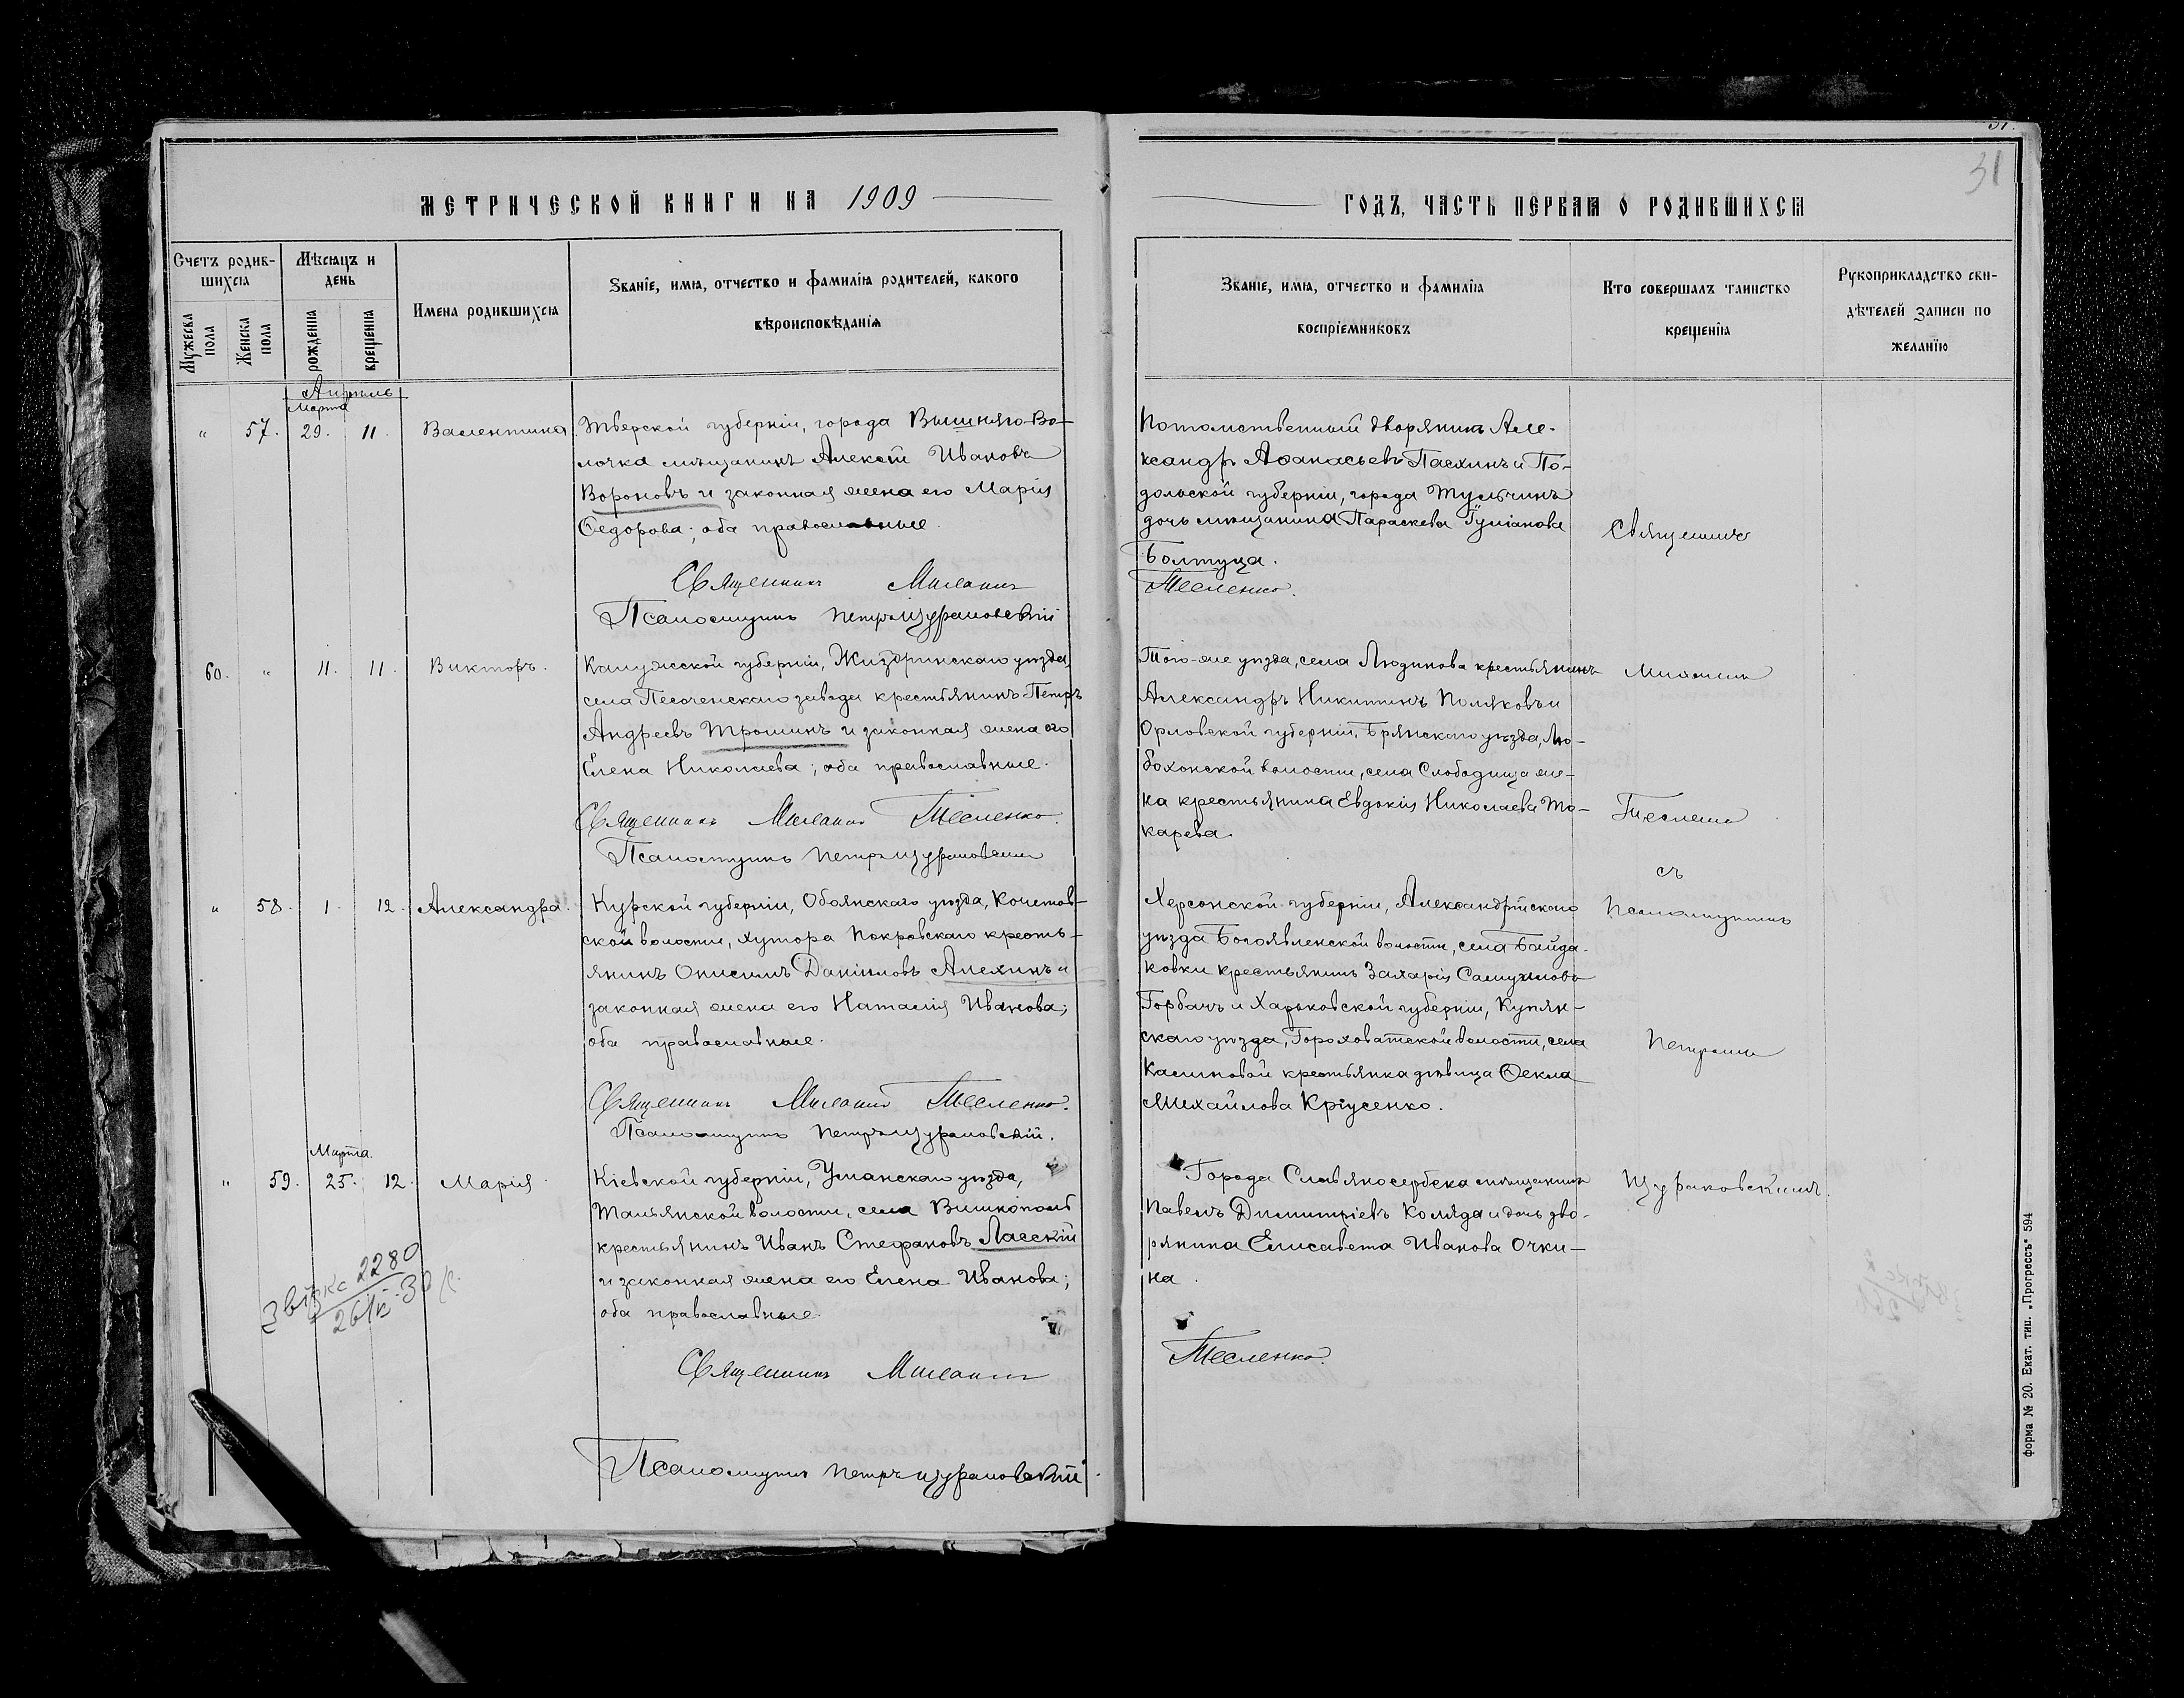 31
МЕТРИЧЕСКОЙ КНИГИ НА 1909
ГОДЪ, ЧАСТЬ ПЕРВАЯ О РОДИВШИХСЯ
Счетъ родив-
шихся
Мужеска
пола
Женска
пола
Мѣсяцъ и
день
рожденія
крещенія
Имена родившихся
Званіе, имя, отчество и фамилія родителей, какого
вѣроисповѣданія
Званіе, имя, отчество и фамилія
воспріемниковъ
Кто совершалъ таинство
крещенія
Рукоприкладство сви-
дѣтелей записи по
желанію
Апрѣль
Марта
" 57. 29. 11. Валентина.
Тверской губерніи, города Вышняго-Во-
лочка мѣщанинъ Алексѣй Ивановъ
Вороновъ и законная жена его Марія
Ѳедорова; оба православные.
Священникъ
Псаломщикъ Петръ Щураковскій
Потомственный дворянинъ Але-
ксандръ Аѳанасьевъ Пасхинъ и По-
дольской губерніи, города Тульчинъ
дочь мѣщанина Параскева
Болтуца.
Тесленко.
Священникъ
60. " 11. 11. Викторъ.
Калужской губерніи, Жиздринскаго уѣзда,
села Песоченскаго завода крестьянинъ Петръ
Андреевъ Трошинъ и законная жена его
Елена Николаева; оба православные.
Священникъ Тесленко.
Псаломщикъ Петръ Щураковскій
Того-же уѣзда, села Людинова крестьянинъ
Александръ Никитинъ Поляковъ и
Орловской губерніи, Брянскаго уѣзда, Лю-
бохонской волости, села Слободища же-
на крестьянина Евдокія Николаева То-
карева.
Тесленко
съ
" 58. 1. 12. Александра.
Курской губерніи, Обоянскаго уѣзда, Кочетов-
ской волости, хутора Покровскаго кресть-
янинъ Онисимъ Даніиловъ Алехинъ и
законная жена его Наталія Иванова;
оба православные.
Священникъ Тесленко.
Псаломщикъ Петръ Щураковскій.
Херсонской губерніи, Александрійскаго
уѣзда Богоявленской волости, села Байда-
ковки крестьянинъ Захарія Самуиловъ
Горбачъ и Харьковской губерніи, Купян-
скаго уѣзда, Гороховатской волости, села
Калиновой крестьянка дѣвица Ѳекла
Михайлова Кріусенко.
Псаломщикомъ
Петромъ
Марта.
" 59. 25. 12. Марія.
Кіевской губерніи, Уманскаго уѣзда,
Тальянской волости, села Вишнополь
крестьянинъ Иванъ Стефановъ Ласскій
и законная жена его Елена Иванова;
оба православные.
Священникъ
Псаломщикъ Петръ Щураковскій.
Города Славяносербска мѣщанинъ
Павелъ Димитріевъ Коляда и дочь дво-
рянина Елисавета Иванова Очки-
на.
Тесленко.
Щураковскимъ.
2280
форма № 20. Екат. тип. „Прогрессъ" 594